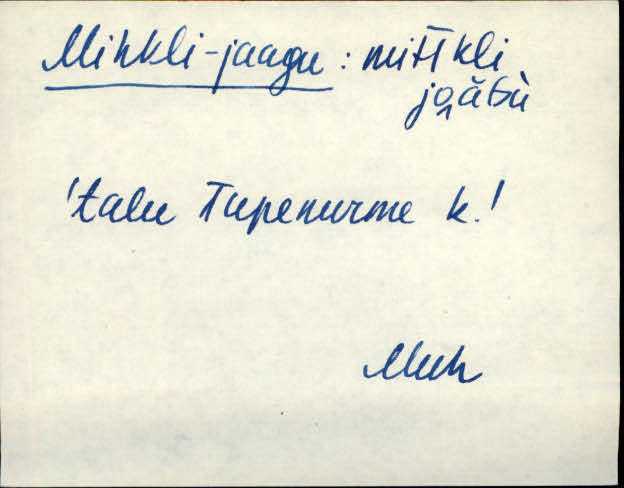 Mihkli-jaagu : mihkli
jo̭ăGù
'talu Tupenurme k.'
Muh